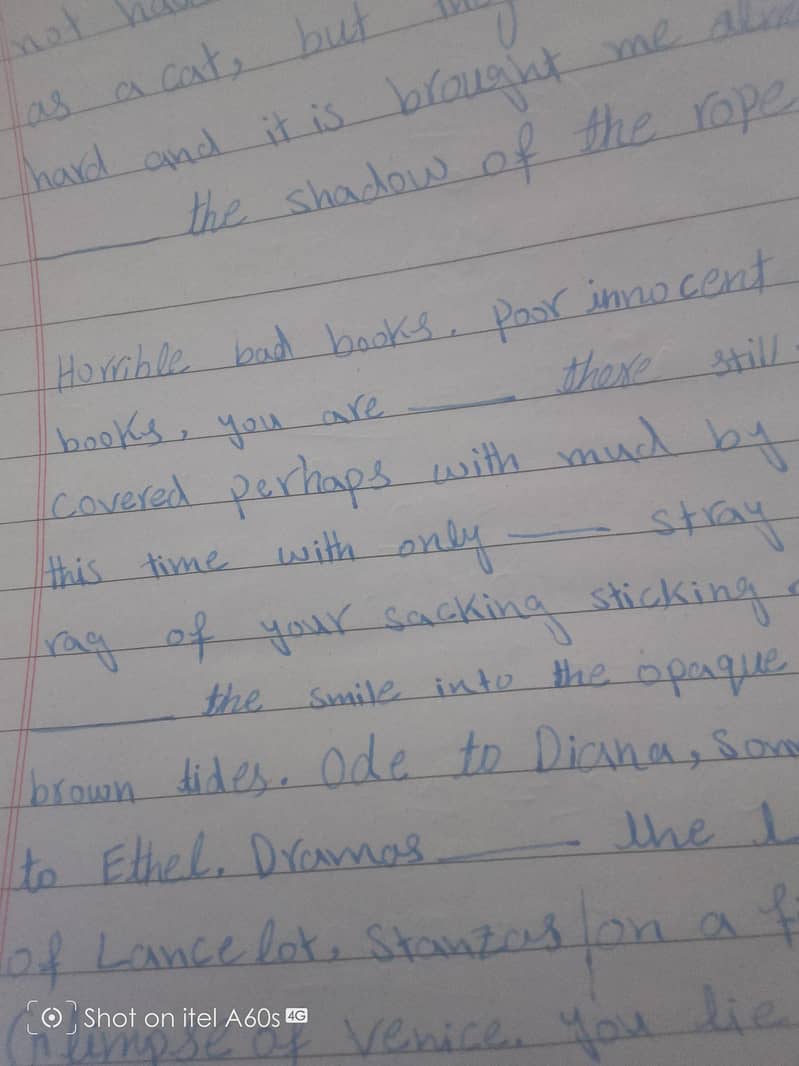 not
as a cat, but
hard and it is brought me
_____ the shadow of the rope
Horrible bad books. Poor innocent
books, you are _____ there still
covered perhaps with mud by
this time with only _____ stray
rag of your sacking sticking
_____ the smile into the opaque
brown tides. Ode to Diana,
to Ethel. Dramas _____ the
of Lancelot, Stanzas on a
Glimpse of Venice. you lie
Shot on itel A60s 4G